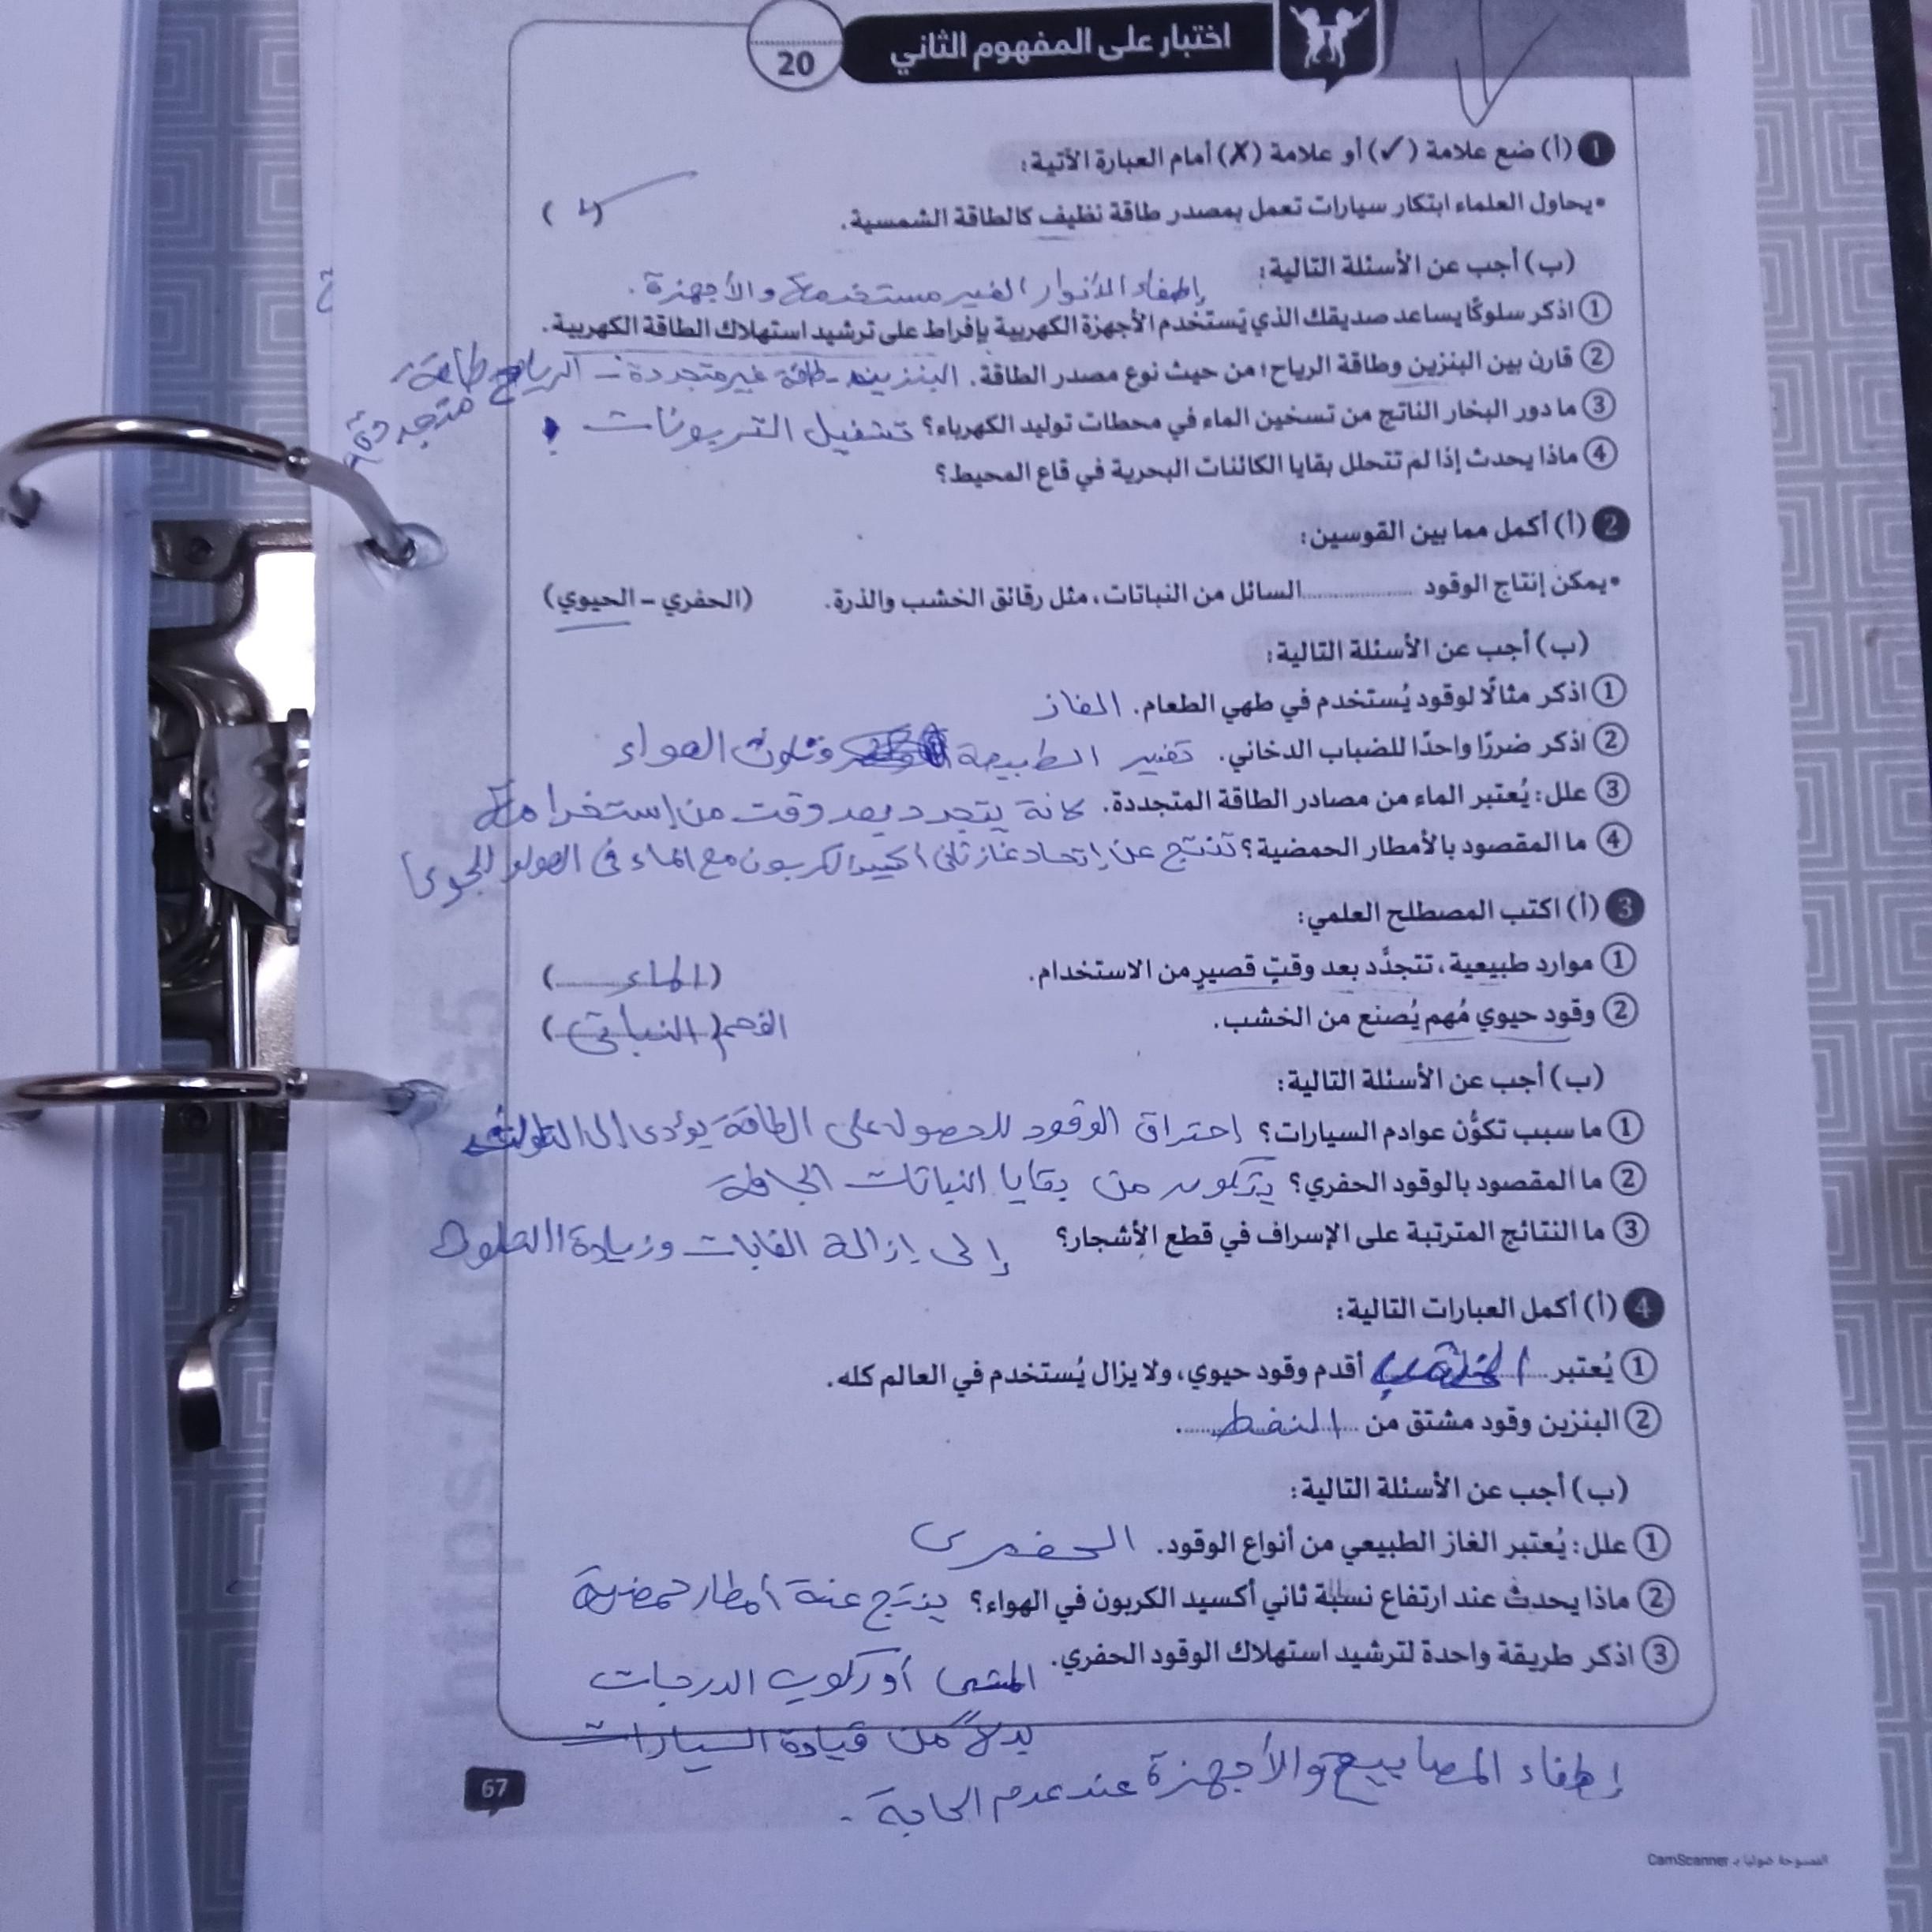 اختبار على المفهوم الثاني
20
1 (أ) ضع علامة (✓) أو علامة (✗) أمام العبارة الآتية:
• يحاول العلماء ابتكار سيارات تعمل بمصدر طاقة نظيف كالطاقة الشمسية. ( )
(ب) أجب عن الأسئلة التالية:
إطفاء الأنوار الغير مستخدمة والأجهزة.
1 اذكر سلوكًا يساعد صديقك الذي يَستخدم الأجهزة الكهربية بإفراط على ترشيد استهلاك الطاقة الكهربية.
2 قارن بين البنزين وطاقة الرياح؛ من حيث نوع مصدر الطاقة. البنزين - طاقة غير متجددة - الرياح طاقة
متجددة
3 ما دور البخار الناتج من تسخين الماء في محطات توليد الكهرباء؟ تشغيل التربونات
4 ماذا يحدث إذا لم تتحلل بقايا الكائنات البحرية في قاع المحيط؟
2 (أ) أكمل مما بين القوسين:
• يمكن إنتاج الوقود .................. السائل من النباتات، مثل رقائق الخشب والذرة. (الحفري - الحيوي)
(ب) أجب عن الأسئلة التالية:
1 اذكر مثالًا لوقود يُستخدم في طهي الطعام. الغاز
2 اذكر ضررًا واحدًا للضباب الدخاني. تغيير الطبيعة وتلوث الهواء
3 علل: يُعتبر الماء من مصادر الطاقة المتجددة. لانة يتجدد بعد وقت من إستخدامة
4 ما المقصود بالأمطار الحمضية؟ تنتج عن إتحاد غاز ثانى أكسيد الكربون مع الماء فى الهواء الجوى
3 (أ) اكتب المصطلح العلمي:
1 موارد طبيعية، تتجدَّد بعد وقتٍ قصيرٍ من الاستخدام. (الماء)
2 وقود حيوي مُهم يُصنع من الخشب. الفحم (النباتى)
(ب) أجب عن الأسئلة التالية:
1 ما سبب تكوُّن عوادم السيارات؟ إحتراق الوقود للحصول على الطاقة يؤدى إلى
2 ما المقصود بالوقود الحفري؟ يتكون من بقايا النباتات الجافة
3 ما النتائج المترتبة على الإسراف في قطع الأشجار؟ إلى إزالة الغابات وزيادة التلوث
4 (أ) أكمل العبارات التالية:
1 يُعتبر الخشب أقدم وقود حيوي، ولا يزال يُستخدم في العالم كله.
2 البنزين وقود مشتق من النفط.
(ب) أجب عن الأسئلة التالية:
1 علل: يُعتبر الغاز الطبيعي من أنواع الوقود. الحفرى
2 ماذا يحدث عند ارتفاع نسبة ثاني أكسيد الكربون في الهواء؟ ينتج عنة أمطار حمضية
3 اذكر طريقة واحدة لترشيد استهلاك الوقود الحفري. المشى أو ركوب الدرجات
بدلاً من قيادة السيارات
إطفاء المصابيع والأجهزة عند عدم الحاجة.
67
الممسوحة ضوئيا بـ CamScanner